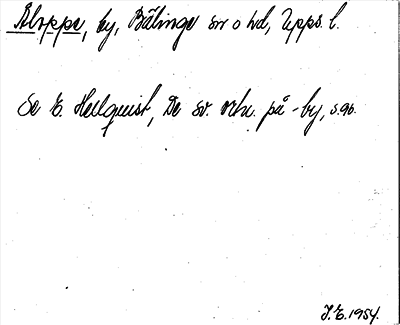 Åloppe, by, Bälinge sn o hd, Upps. l.
Se E. Hellquist, De sv. ortn. på -by, s. 90.
J.E. 1954.